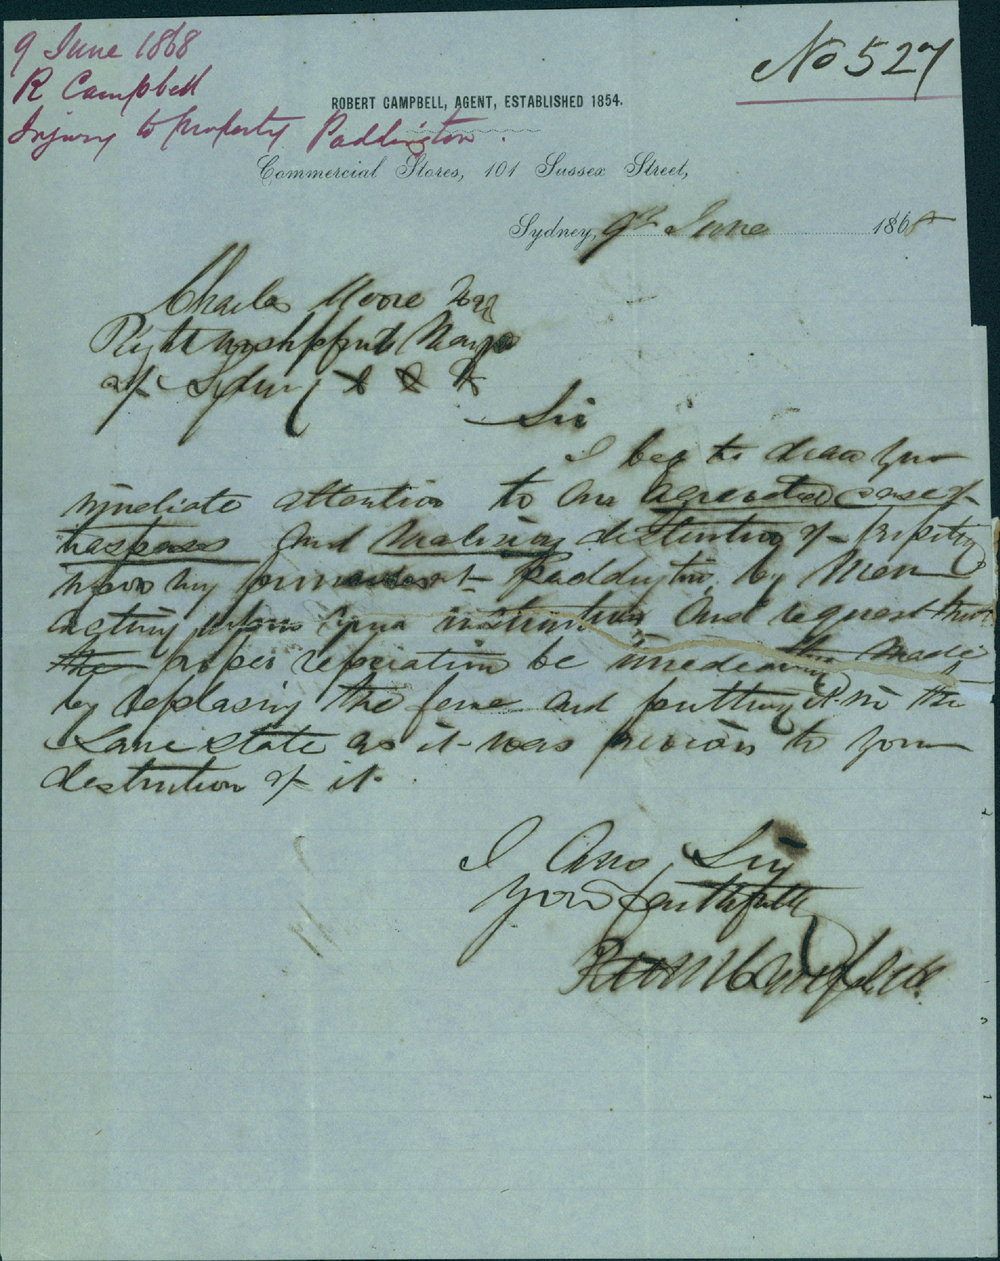 9 June 1868
R Campbell
Injury to property Paddington.
No 527
ROBERT CAMPBELL, AGENT, ESTABLISHED 1854.
Commercial Stores, 101 Sussex Street,
Sydney, 9th June 1868
Charles Moore Esq
Right worshipful Mayor
of Sydney & & &
Sir
I beg to draw your
attention to an case of
trespass and of
my Paddington by Men
acting your instructions and request that
the proper reperation be made
by replasing the fence and putting it in the
same state as it was to your
of it.
I am Sir
your faithfully
Campbell